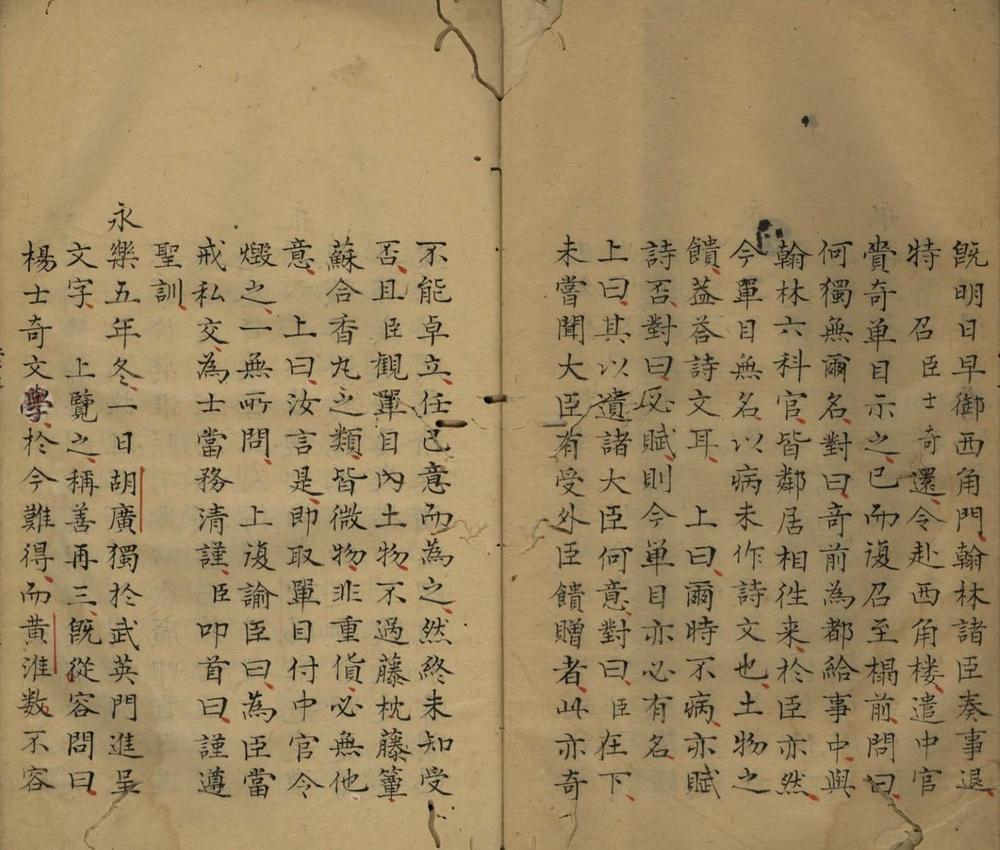 既明日早御西角門翰林諸臣奏事退
特 召臣士奇還令赴西角楼遣中官
賫奇单目示之已而復召至榻前問曰
何獨無爾名對曰奇前為都給事中與
翰林六科官皆鄰居相徃来於臣亦然
今單目無名以病未作詩文也土物之
饋葢荅詩文耳 上曰爾時不病亦賦
詩否對曰必賦則今单目亦必有名
上曰其以遺諸大臣何意對曰臣在下
未嘗聞大臣有受外臣饋贈者此亦奇
不能卓立任己意而為之然終未知受
否且臣觀單目內土物不過藤枕藤簟
蘇合香丸之類皆微物非重貨必無他
意 上曰汝言是即取單目付中官令
燬之一無所問 上復諭臣曰為臣當
戒私交為士當務清謹臣叩首曰謹遵
聖訓
永樂五年冬一日胡廣獨於武英門進呈
文字 上覽之稱善再三既從容問曰
楊士奇文學於今難得而黄淮数不容